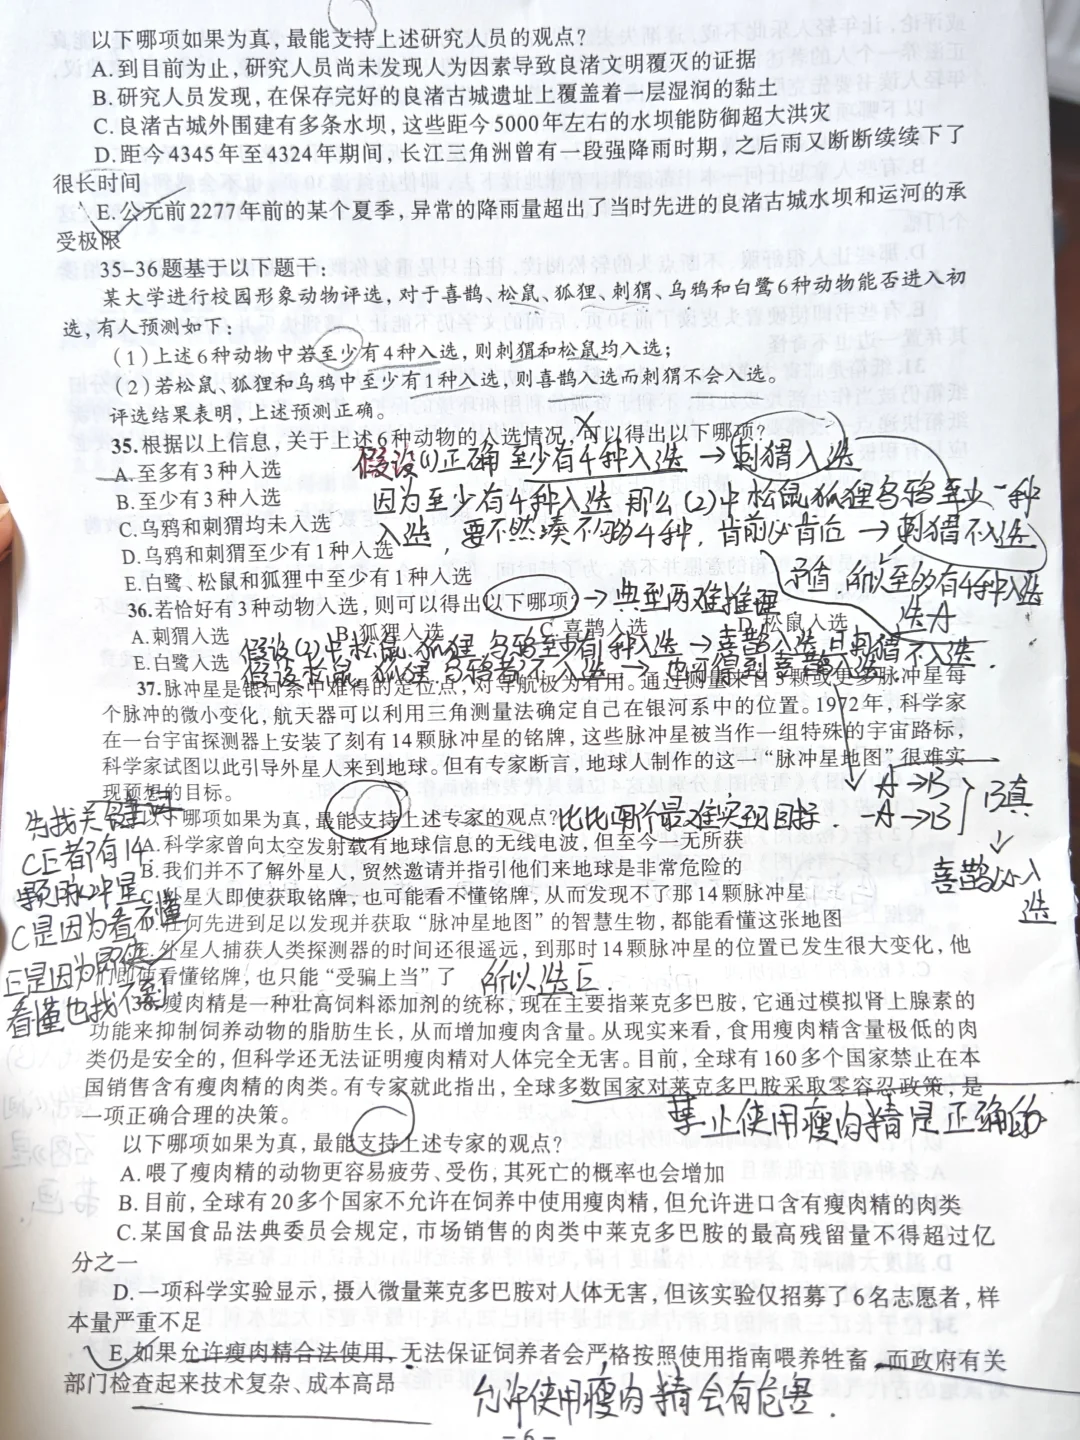 以下哪项如果为真，最能支持上述研究人员的观点？
A.到目前为止，研究人员尚未发现人为因素导致良渚文明覆灭的证据
B.研究人员发现，在保存完好的良渚古城遗址上覆盖着一层湿润的黏土
C.良渚古城外围建有多条水坝，这些距今5000年左右的水坝能防御超大洪灾
D.距今4345年至4324年期间，长江三角洲曾有一段强降雨时期，之后雨又断断续续下了
很长时间
E.公元前2277年前的某个夏季，异常的降雨量超出了当时先进的良渚古城水坝和运河的承
受极限
35-36题基于以下题干：
某大学进行校园形象动物评选，对于喜鹊、松鼠、狐狸、刺猬、乌鸦和白鹭6种动物能否进入初
选，有人预测如下：
(1)上述6种动物中若至少有4种入选，则刺猬和松鼠均入选；
(2)若松鼠、狐狸和乌鸦中至少有1种入选，则喜鹊入选而刺猬不会入选。
评选结果表明，上述预测正确。
35.根据以上信息，关于上述6种动物的入选情况，可以得出以下哪项？
假设(1)正确 至少有4种入选 → 刺猬入选
A.至多有3种入选
因为至少有4种入选 那么(2)中松鼠狐狸乌鸦至少一种
B.至少有3种入选
入选，要不然凑不够4种，肯前必肯后 → 刺猬不入选
C.乌鸦和刺猬均未入选
D.乌鸦和刺猬至少有1种入选
E.白鹭、松鼠和狐狸中至少有1种入选
矛盾 所以至多有4种入选
选A
36.若恰好有3种动物入选，则可以得出以下哪项？ → 典型两难推理
A.刺猬入选 B.狐狸入选 C.喜鹊入选 D.松鼠入选
假设(2)中松鼠 狐狸 乌鸦至少有1种入选 → 喜鹊入选且刺猬不入选.
E.白鹭入选 假设松鼠 狐狸 乌鸦都不入选 → 也可得到喜鹊入选.
37.脉冲星是银河系中难得的定位点，对导航极为有用。通过测量来自3颗或更多脉冲星每
个脉冲的微小变化，航天器可以利用三角测量法确定自己在银河系中的位置。1972年，科学家
在一台宇宙探测器上安装了刻有14颗脉冲星的铭牌，这些脉冲星被当作一组特殊的宇宙路标，
科学家试图以此引导外星人来到地球。但有专家断言，地球人制作的这一“脉冲星地图”很难实
现预想的目标。
A→B
¬A→B
B真
喜鹊必入
选
以下哪项如果为真，最能支持上述专家的观点？比比哪个最难实现目标
A.科学家曾向太空发射载有地球信息的无线电波，但至今一无所获
B.我们并不了解外星人，贸然邀请并指引他们来地球是非常危险的
C.外星人即使获取铭牌，也可能看不懂铭牌，从而发现不了那14颗脉冲星
D.任何先进到足以发现并获取“脉冲星地图”的智慧生物，都能看懂这张地图
E.外星人捕获人类探测器的时间还很遥远，到那时14颗脉冲星的位置已发生很大变化，他
们即使看懂铭牌，也只能“受骗上当”了 所以选E
先找关键词
C E者有14
颗脉冲星
C是因为看不懂
E是因为即使
看懂也找不到
38.瘦肉精是一种壮高饲料添加剂的统称，现在主要指莱克多巴胺，它通过模拟肾上腺素的
功能来抑制饲养动物的脂肪生长，从而增加瘦肉含量。从现实来看，食用瘦肉精含量极低的肉
类仍是安全的，但科学还无法证明瘦肉精对人体完全无害。目前，全球有160多个国家禁止在本
国销售含有瘦肉精的肉类。有专家就此指出，全球多数国家对莱克多巴胺采取零容忍政策，是
一项正确合理的决策。
禁止使用瘦肉精是正确的
以下哪项如果为真，最能支持上述专家的观点？
A.喂了瘦肉精的动物更容易疲劳、受伤；其死亡的概率也会增加
B.目前，全球有20多个国家不允许在饲养中使用瘦肉精，但允许进口含有瘦肉精的肉类
C.某国食品法典委员会规定，市场销售的肉类中莱克多巴胺的最高残留量不得超过亿
分之一
D.一项科学实验显示，摄人微量莱克多巴胺对人体无害，但该实验仅招募了6名志愿者，样
本量严重不足
E.如果允许瘦肉精合法使用，无法保证饲养者会严格按照使用指南喂养牲畜，而政府有关
部门检查起来技术复杂、成本高昂
允许使用瘦肉精会有危害.
- 6 -